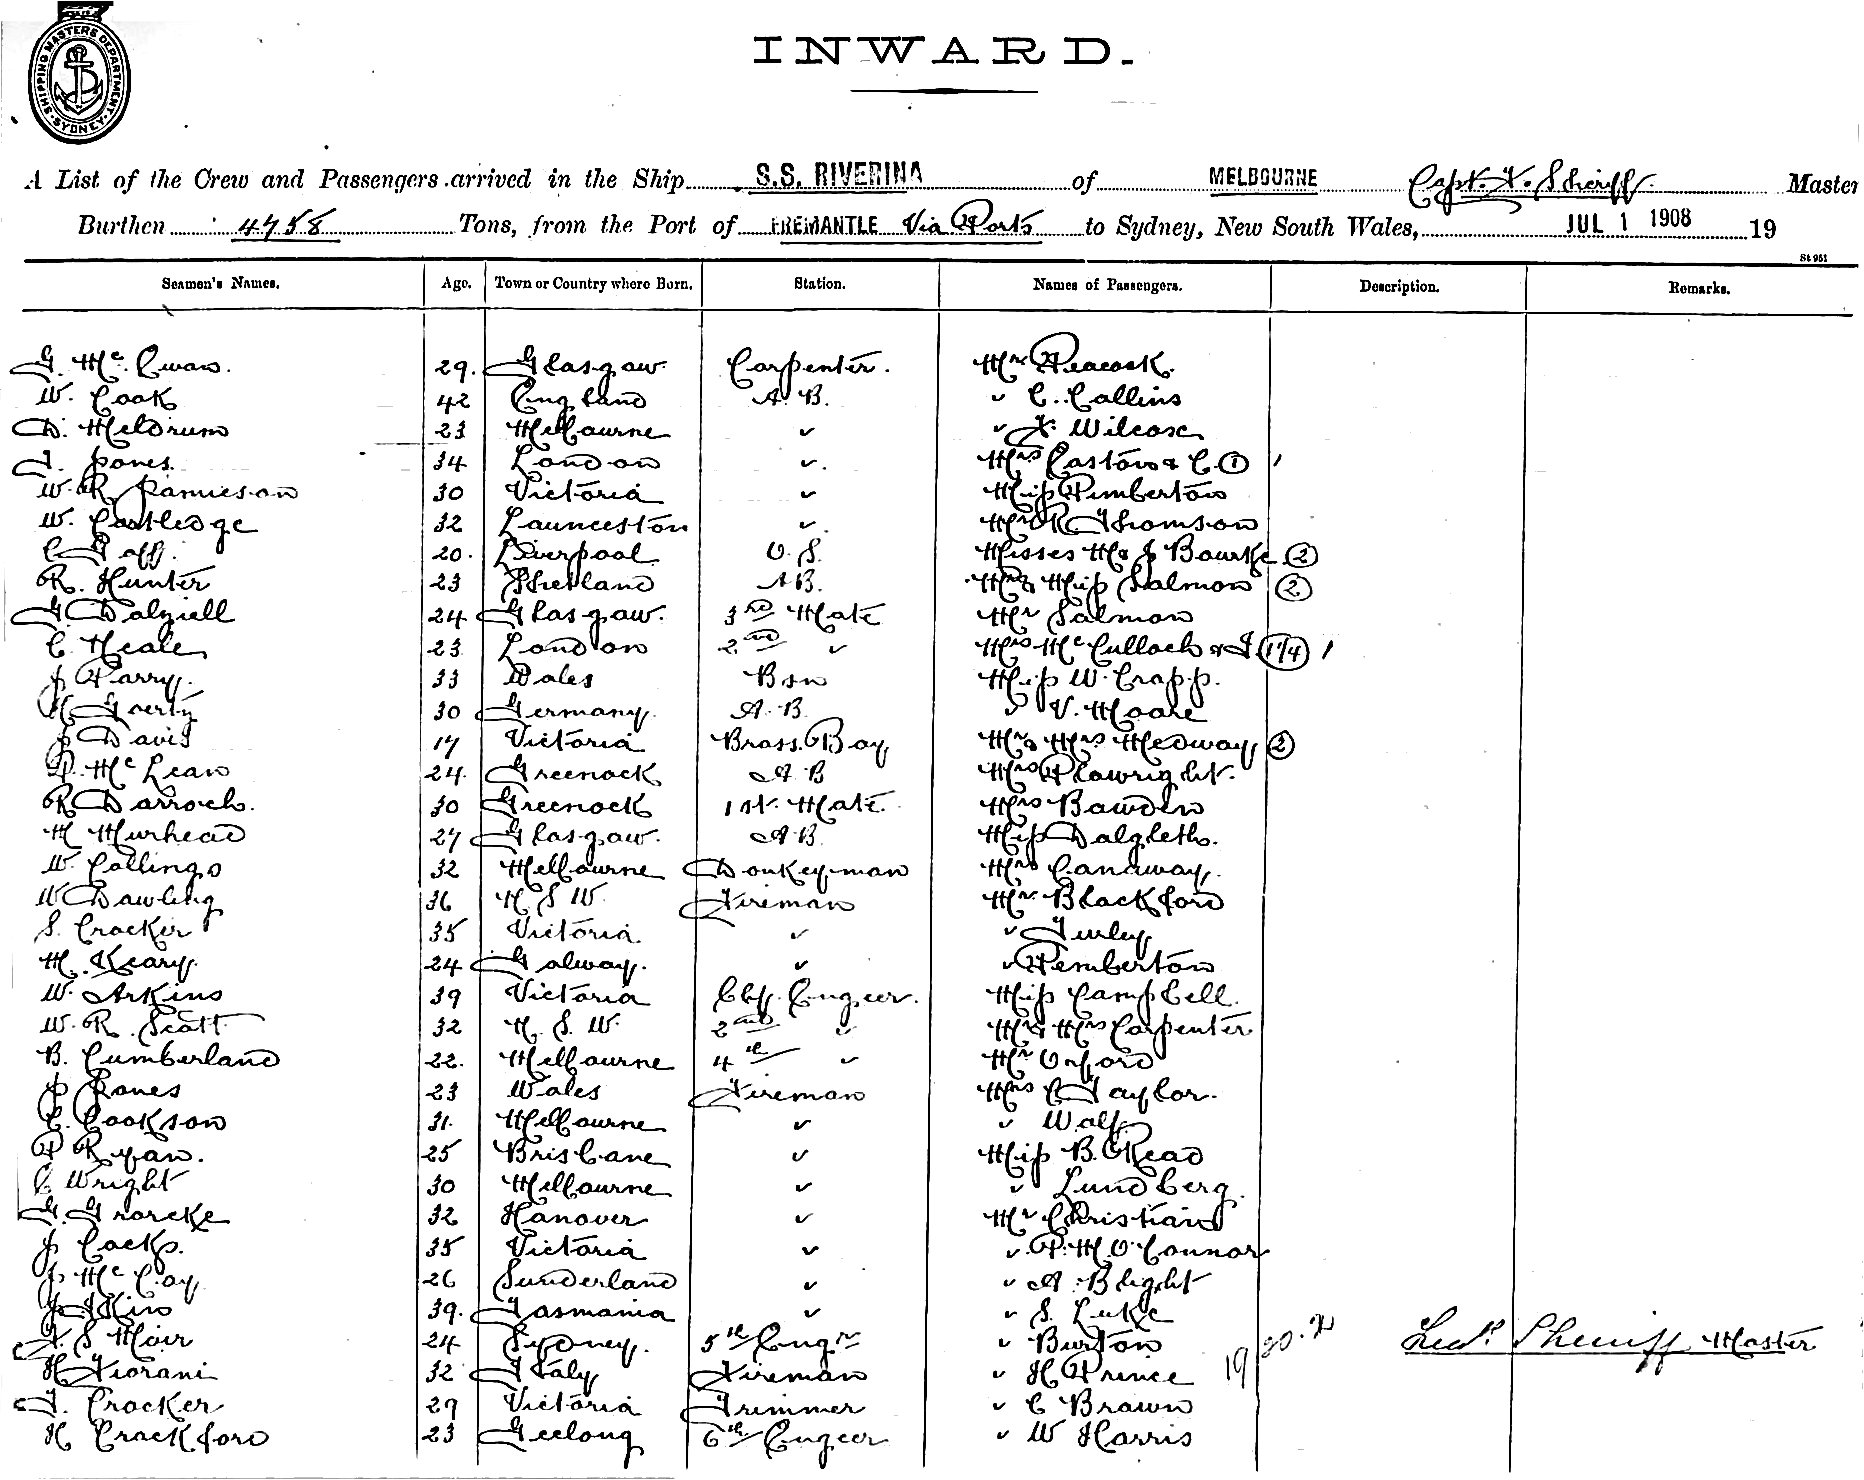 SHIPPING MASTERS DEPARTMENT · SYDNEY ·
INWARD.
A List of the Crew and Passengers arrived in the Ship S.S. RIVERINA of MELBOURNE Capt. F. Sheriff. Master
Burthen 4758 Tons, from the Port of FREMANTLE Via Ports to Sydney, New South Wales, JUL 1 1908 19
St 951
Seamen's Names. Age. Town or Country where Born. Station. Names of Passengers. Description. Remarks.
G. Mc. Ewan. 29. Glasgow. Carpenter. Mr. Peacock.
W. Cook 42 England A. B. " C. Collins
D. Meldrum 23 Melbourne " " F. Wilcox
J. Jones. 34 London ". Mrs Easton & C. 1
W. R. Jamieson 30 Victoria " Miss Pemberton
W. Eastledge 32 Launceston ". Mr R Thomson
C Goff. 20. Liverpool O. S. Misses M & J Bourke 2
R. Hunter 23 Shetland A B. Mr & Miss Salmon 2
G Dalziell 24 Glasgow. 3rd Mate Mr Salmon
C. Neale 23 London 2nd " Mrs McCulloch & J 1/4
J Parry. 33 Wales Bsn Miss W. Crapp.
Goerty 30 Germany. A. B. " V. Moore
J Davis 17 Victoria Brass. Boy Mr & Mrs Medway 2
D. McLean 24. Greenock A B Mrs Plowright.
R Darroch. 30 Greenock 1st. Mate. Mrs Bawden
M Muirhead 27 Glasgow. A B. Miss Dalgleth.
W. Collings 32 Melbourne Donkeyman Mrs Canaway.
W Dawling 36 N. S W. Fireman Mr. Blackford
S. Crocker 35 Victoria. " " Turley
M. Keary. 24 Galway. " " Pemberton
W. Arkins 39 Victoria Chf. Engeer. Miss Campbell.
W. R. Scott 32 N. S. W. 2nd " Mr & Mrs Carpenter
B. Cumberland 22. Melbourne 4th " Mr Oxford
J Jones 23 Wales Fireman Mrs C Taylor.
C. Cookson 31. Melbourne " " Wolf
P Ryan. 25 Brisbane " Miss B. Read
C Wright 30 Melbourne " " Lundberg.
G. Grorcke 32 Hanover " Mr Christian
J Cocks. 35 Victoria " " P. M. O'Connor
J. McCoy 26 Sunderland " " A. Blight
J King 39. Tasmania " " S. Luke
F. S Moir 24 Sydney. 5th Engr " Burton Fredk. Sheriff Master
H Fiorani 32 Italy Fireman " H Prince 19
J. Crocker 29 Victoria Trimmer " C Brown
H Crackford 23 Geelong 6th Engeer " W Harris